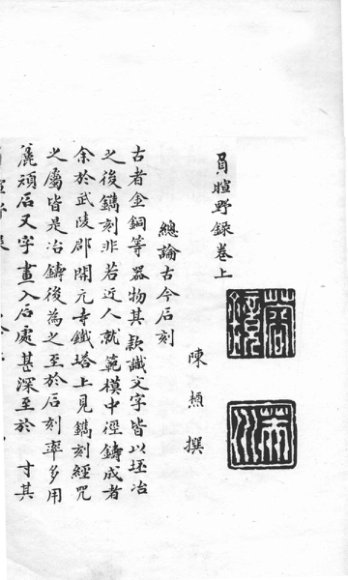 負暄野録卷上
陳槱撰
總論古今石刻
古者金銅等器物其款識文字皆以坯冶
之後鐫刻非若近人就範模中徑鑄成者
余於武陵郡開元寺鐵塔上見鐫刻經咒
之屬皆是冶鑄後為之至於石刻率多用
麄頑石又字畫入石處甚深至於寸其